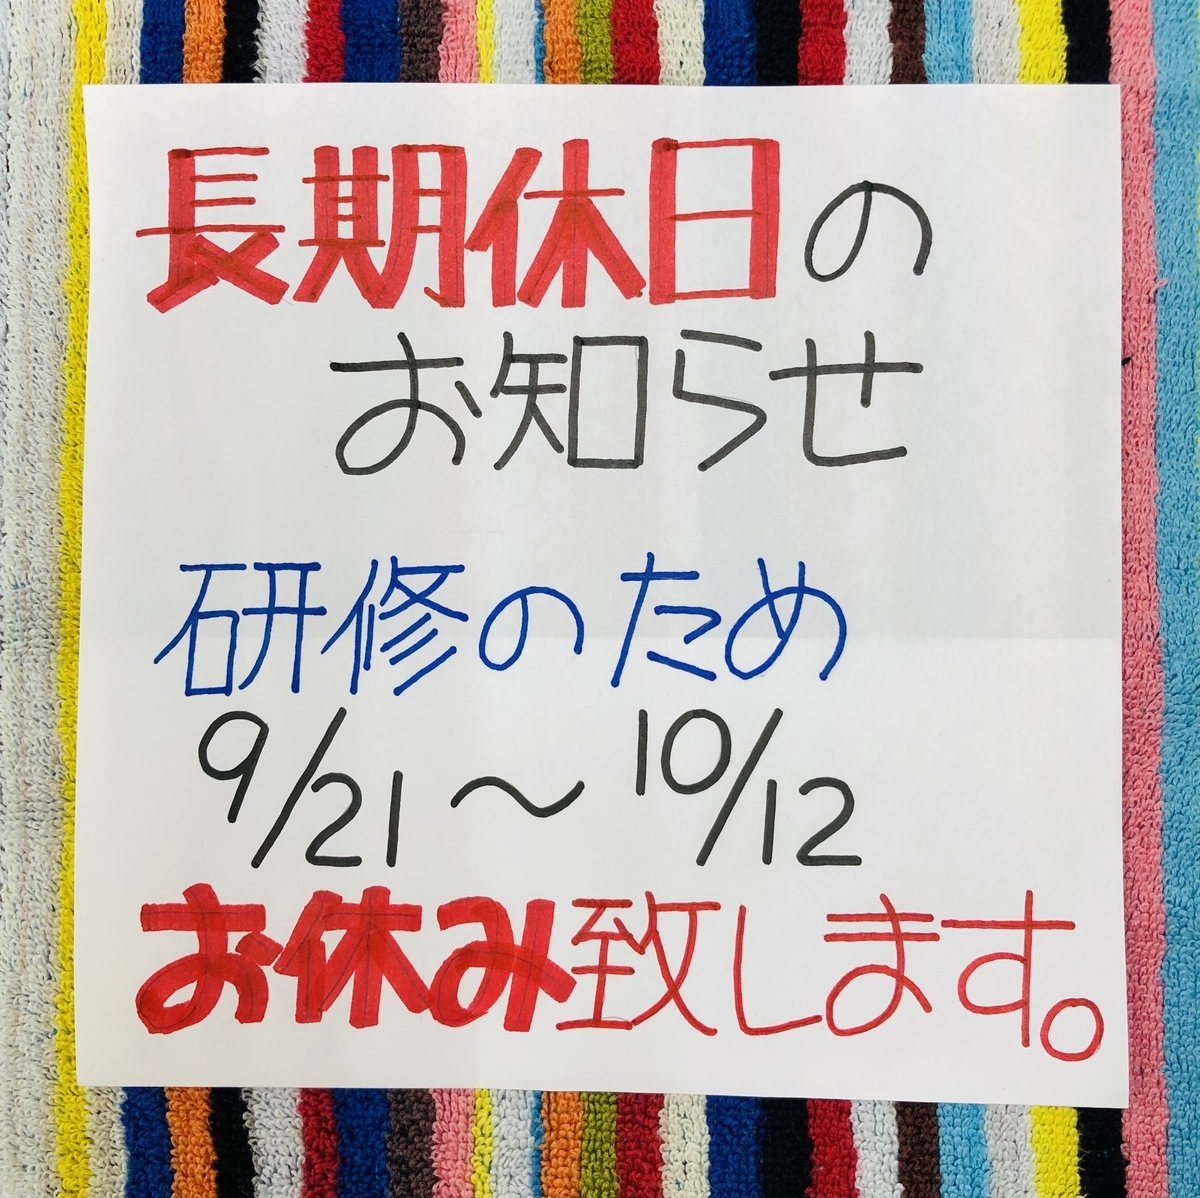 長期休日の
お知らせ
研修のため
9/21～10/12
お休み致します。